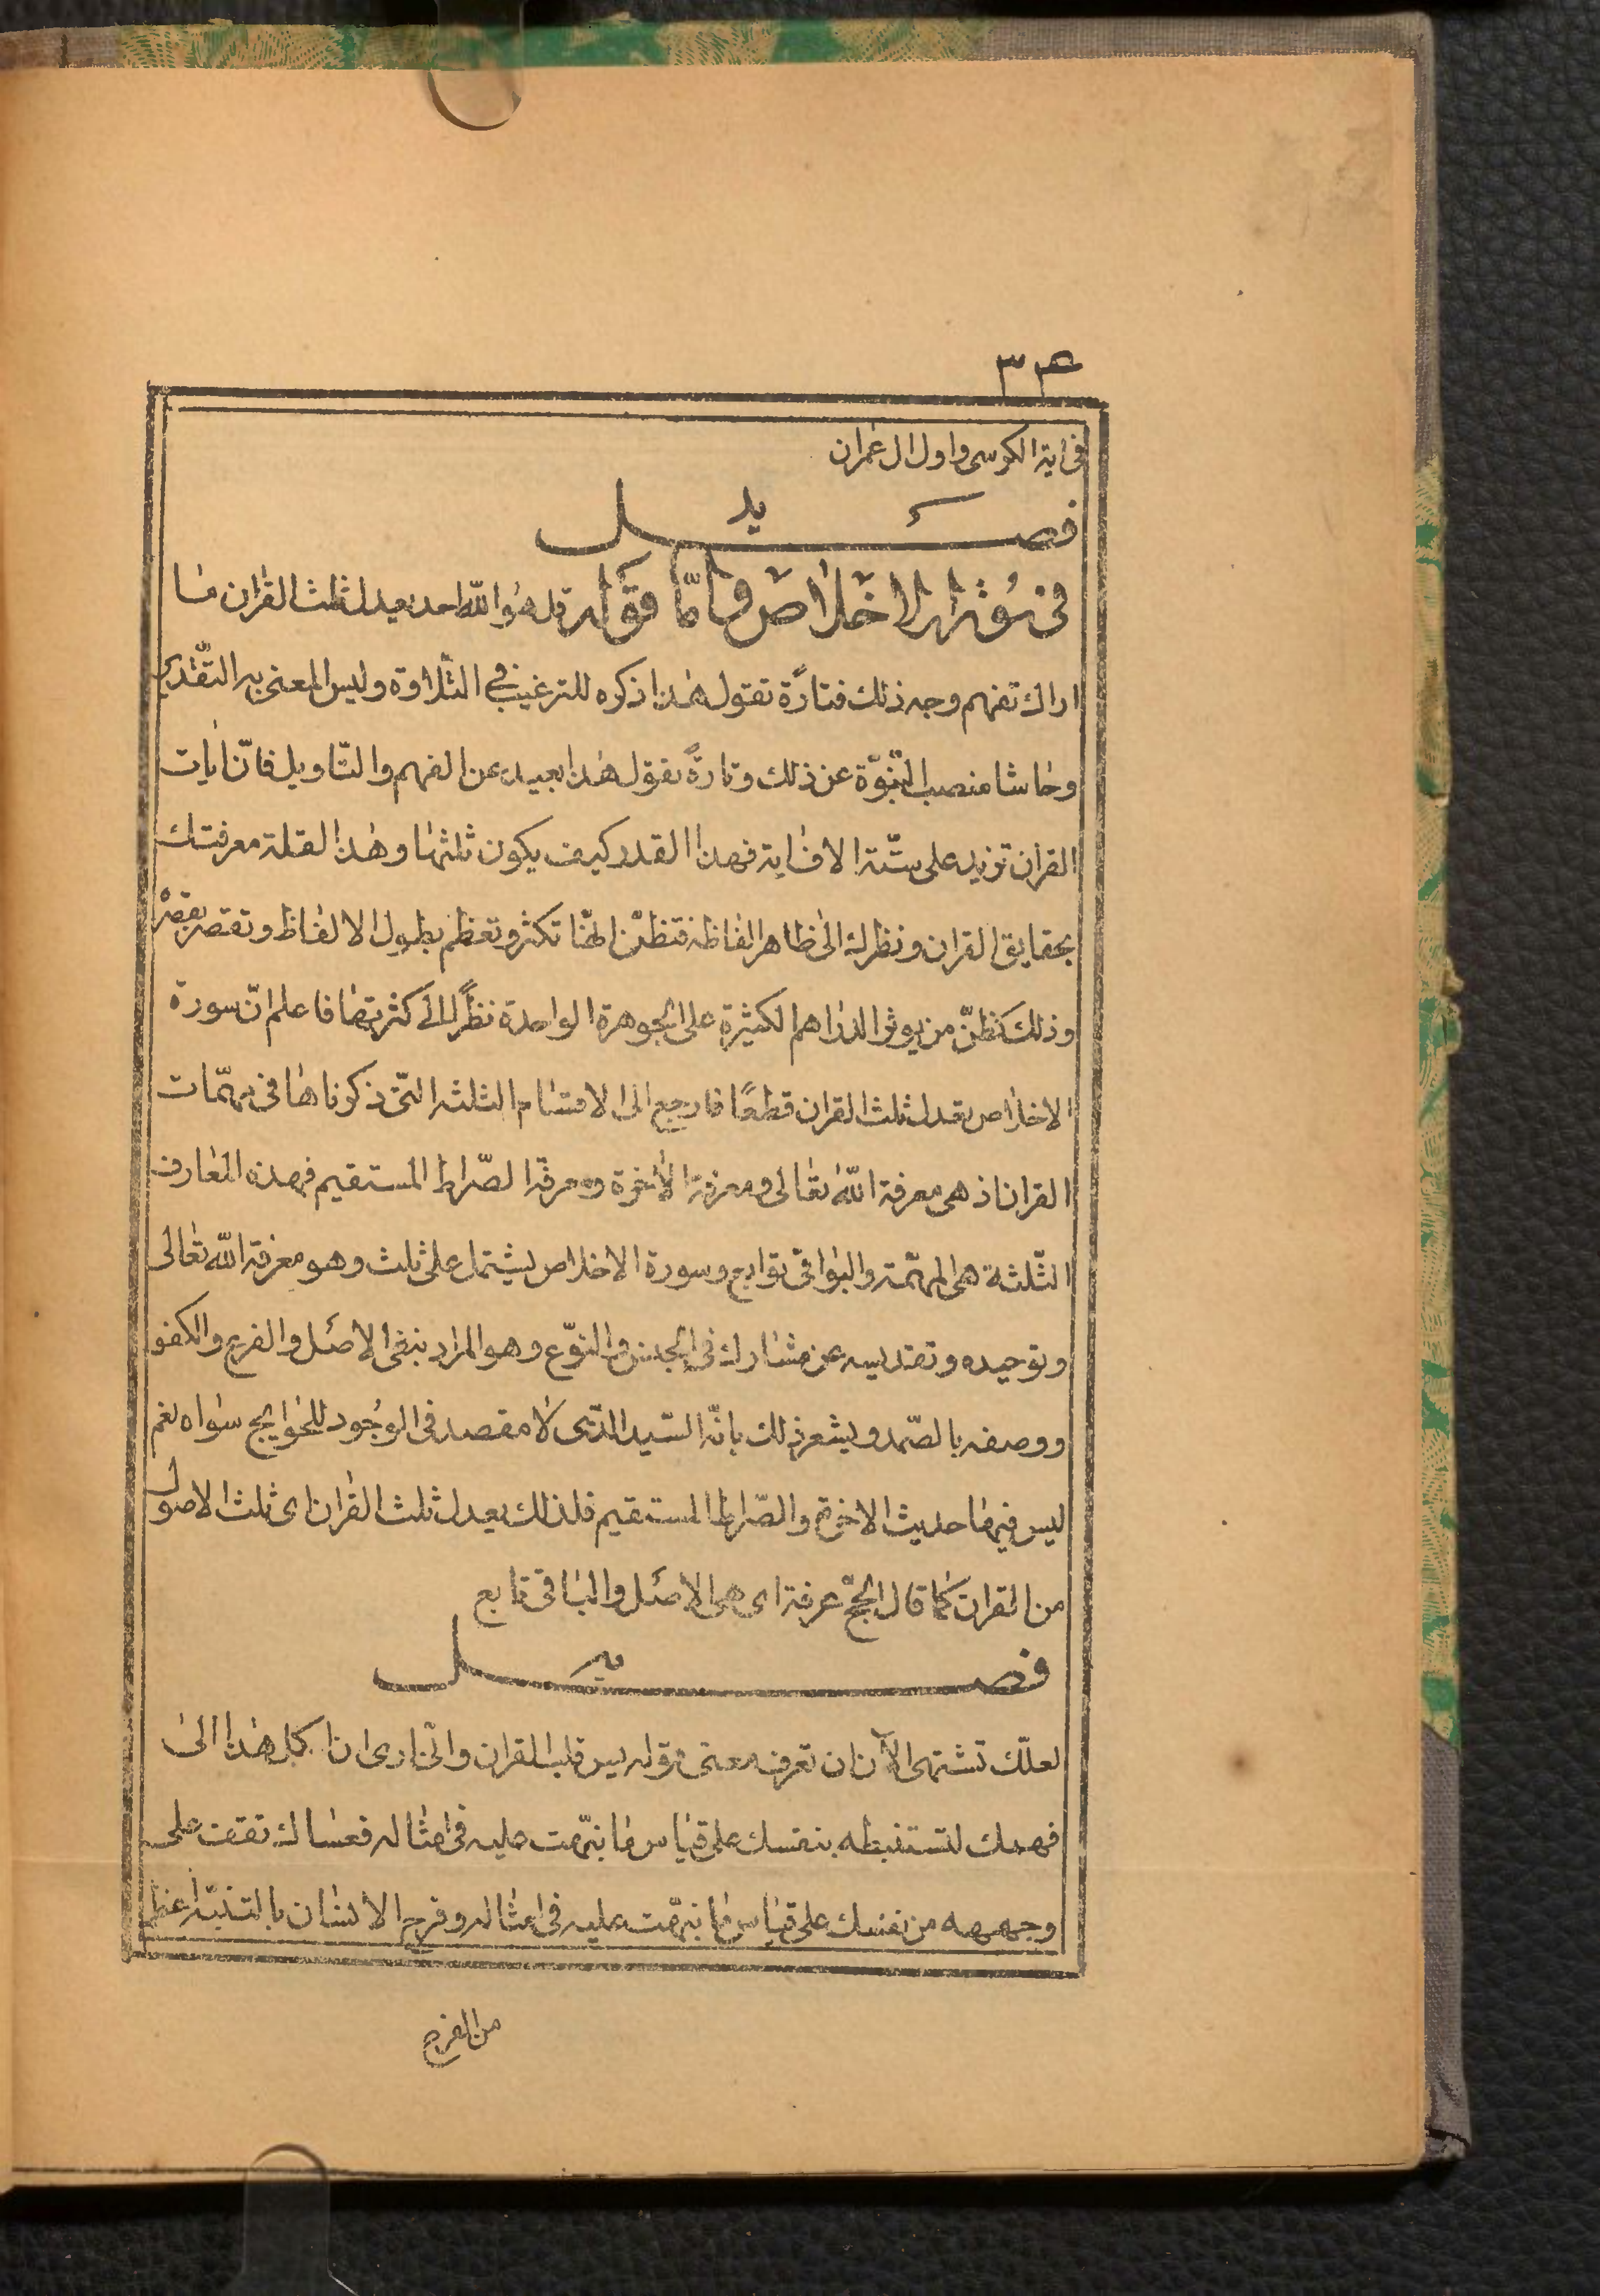 ۳۴
فی اٰیة الکرسی واول ال عمران
فصل ید
فی سُورة الاخلاص وامّا قوله قل هُو اللّه احد یعدل ثلث القراٰن مٰا
اراك تفهم وجه ذلك فتارًة تقول هٰذا ذکره للترغیب فی التّلاوة ولیس المعنی به التّقدیر
وحٰاشا منصب النّبوّة عن ذلك وتارةً تقول هٰذا بعید عن الفهم والتّاویل فانّ اٰیات
القراٰن تزید علی ستّة الاف اٰیة فهذا القدر کیف یکون ثلثها وهٰذا لقلة معرفتك
بحقایق القران ونظرك الیٰ ظاهر الفاظه فتظنّ انّها تکثر وتعظم بطول الالفاظ وتقصر بقصرها
وذلك کظنّ من یوثر الدراهم الکثیرة علی الجوهرة الواحدة نظرًا الی کثرتها فاعلم انّ سورة
الاخلاص تعدل ثلث القران قطعًا فارجع الی الاقسٰام الثلثه الّتی ذکرناهٰا فی مهمّات
القران اذ هی معرفة اللّه تعٰالی ومعرفة الٰاخرة ومعرفة الصّراط المستقیم فهذه المعٰارف
الثّلثة هی المهمّة والبٰواقی توابع وسورة الاخلاص یشتمل علی ثلث وهو معرفة اللّه تعٰالی
وتوحیده وتقدیسه عن مشٰارك فی الجنس والنّوع وهو المراد بنفی الاصل والفرع والکفو
ووصفه بالصّمد ویشعر ذلك بانّه السّید الّذی لٰا مقصد فی الوجُود للحٰوایج سٰواه نعم
لیس فیهٰا حدیث الاخرة والصّراط المستقیم فلذلك یعدل ثلث القراٰن ای ثلث الاصول
من القران کمٰا قال الحجّ عرفة ای هی الاصل والبٰاقی تابع
فصل یه
لعلّك تشتهی الاٰن ان تعرف معنی قوله یس قلب القران وانّی اری ان اکل هٰذا الیٰ
فهمك لتستنبطه بنفسك علی قیٰاس مٰا نبّهت علیه فی امثٰاله فعسٰاك تقف علی
وجهه من نفسك علی قیٰاس مٰا نبّهت علیه فی امثٰاله وفرح الانسٰان بالتنبّه اعظم
من الفرح